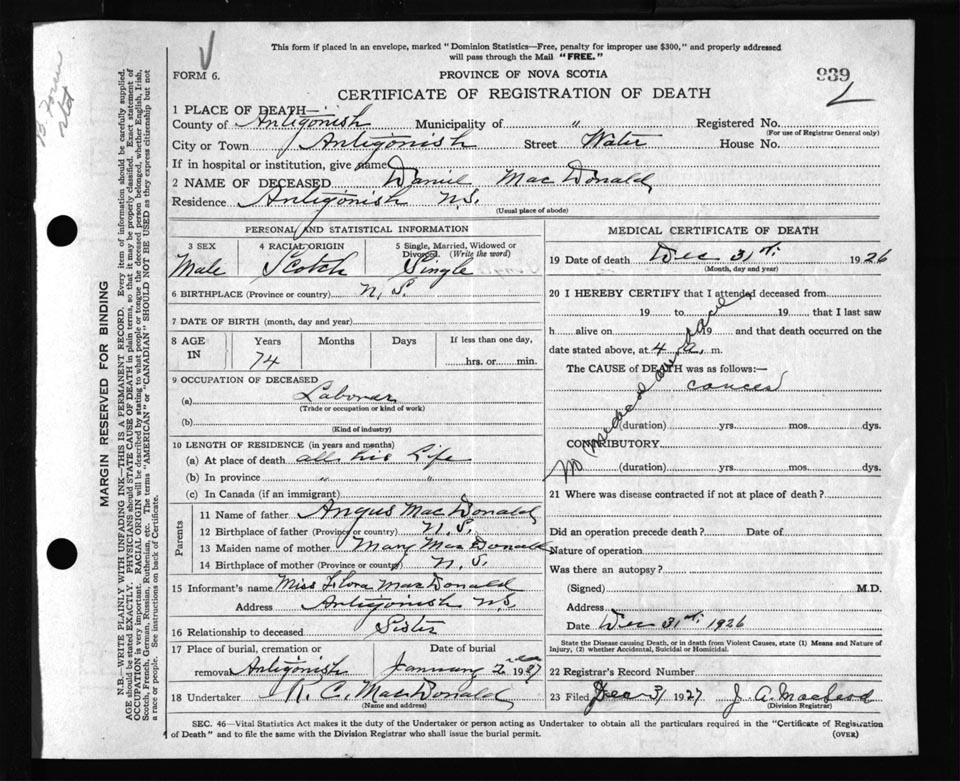 This form if placed in an envelope, marked "Dominion Statistics—Free, penalty for improper use $300," and properly addressed
will pass through the Mail "FREE."
FORM 6.
PROVINCE OF NOVA SCOTIA
939
CERTIFICATE OF REGISTRATION OF DEATH
1 PLACE OF DEATH—
County of Antigonish Municipality of " Registered No.
(For use of Registrar General only)
City or Town Antigonish Street Water House No.
If in hospital or institution, give name
2 NAME OF DECEASED Daniel MacDonald
Residence Antigonish N.S.
(Usual place of abode)
PERSONAL AND STATISTICAL INFORMATION
3 SEX 4 RACIAL ORIGIN 5 Single, Married, Widowed or Divorced. (Write the word)
Male Scotch Single
6 BIRTHPLACE (Province or country) N.S.
7 DATE OF BIRTH (month, day and year)
8 AGE IN Years Months Days If less than one day,
74 hrs. or min.
9 OCCUPATION OF DECEASED
(a) Laborer
(Trade or occupation or kind of work)
(b)
(Kind of industry)
10 LENGTH OF RESIDENCE (in years and months)
(a) At place of death all his Life
(b) In province " "
(c) In Canada (if an immigrant)
Parents
11 Name of father Angus MacDonald
12 Birthplace of father (Province or country) N.S.
13 Maiden name of mother Mary MacDonald
14 Birthplace of mother (Province or country) N.S.
15 Informant's name Miss Flora MacDonald
Address Antigonish N.S.
16 Relationship to deceased Sister
17 Place of burial, cremation or Date of burial
removal Antigonish January 2nd 1927
18 Undertaker R. C. MacDonald
(Name and address)
MEDICAL CERTIFICATE OF DEATH
19 Date of death Dec 31st. 1926
(Month, day and year)
20 I HEREBY CERTIFY that I attended deceased from
19 to 19 that I last saw
h alive on 19 and that death occurred on
date stated above, at 4 a. m.
The CAUSE OF DEATH was as follows:—
cancer
No medical care
(duration) yrs. mos. dys.
CONTRIBUTORY
(duration) yrs. mos. dys.
21 Where was disease contracted if not at place of death?
Did an operation precede death? Date of
Nature of operation
Was there an autopsy?
(Signed) M.D.
Address
Date Dec 31st. 1926
State the Disease causing Death, or in death from Violent Causes, state (1) Means and Nature of
Injury, (2) whether Accidental, Suicidal or Homicidal.
22 Registrar's Record Number
23 Filed Dec 31 1927 J. A. MacLeod
(Division Registrar)
SEC. 46—Vital Statistics Act makes it the duty of the Undertaker or person acting as Undertaker to obtain all the particulars required in the "Certificate of Registration
of Death" and to file the same with the Division Registrar who shall issue the burial permit.
(OVER)
MARGIN RESERVED FOR BINDING
N.B.—WRITE PLAINLY WITH UNFADING INK—THIS IS A PERMANENT RECORD. Every item of information should be carefully supplied.
AGE should be stated EXACTLY. PHYSICIANS should STATE CAUSE OF DEATH in plain terms, so that it may be properly classified. Exact statement of
OCCUPATION is very important. RACIAL ORIGIN will be described by stating to what people or tongue the deceased person belonged, whether English, Irish,
Scotch, French, German, Russian, Ruthenian, etc. The terms "AMERICAN" or "CANADIAN" SHOULD NOT BE USED as they express citizenship but not
a race or people. See instructions on back of Certificate.